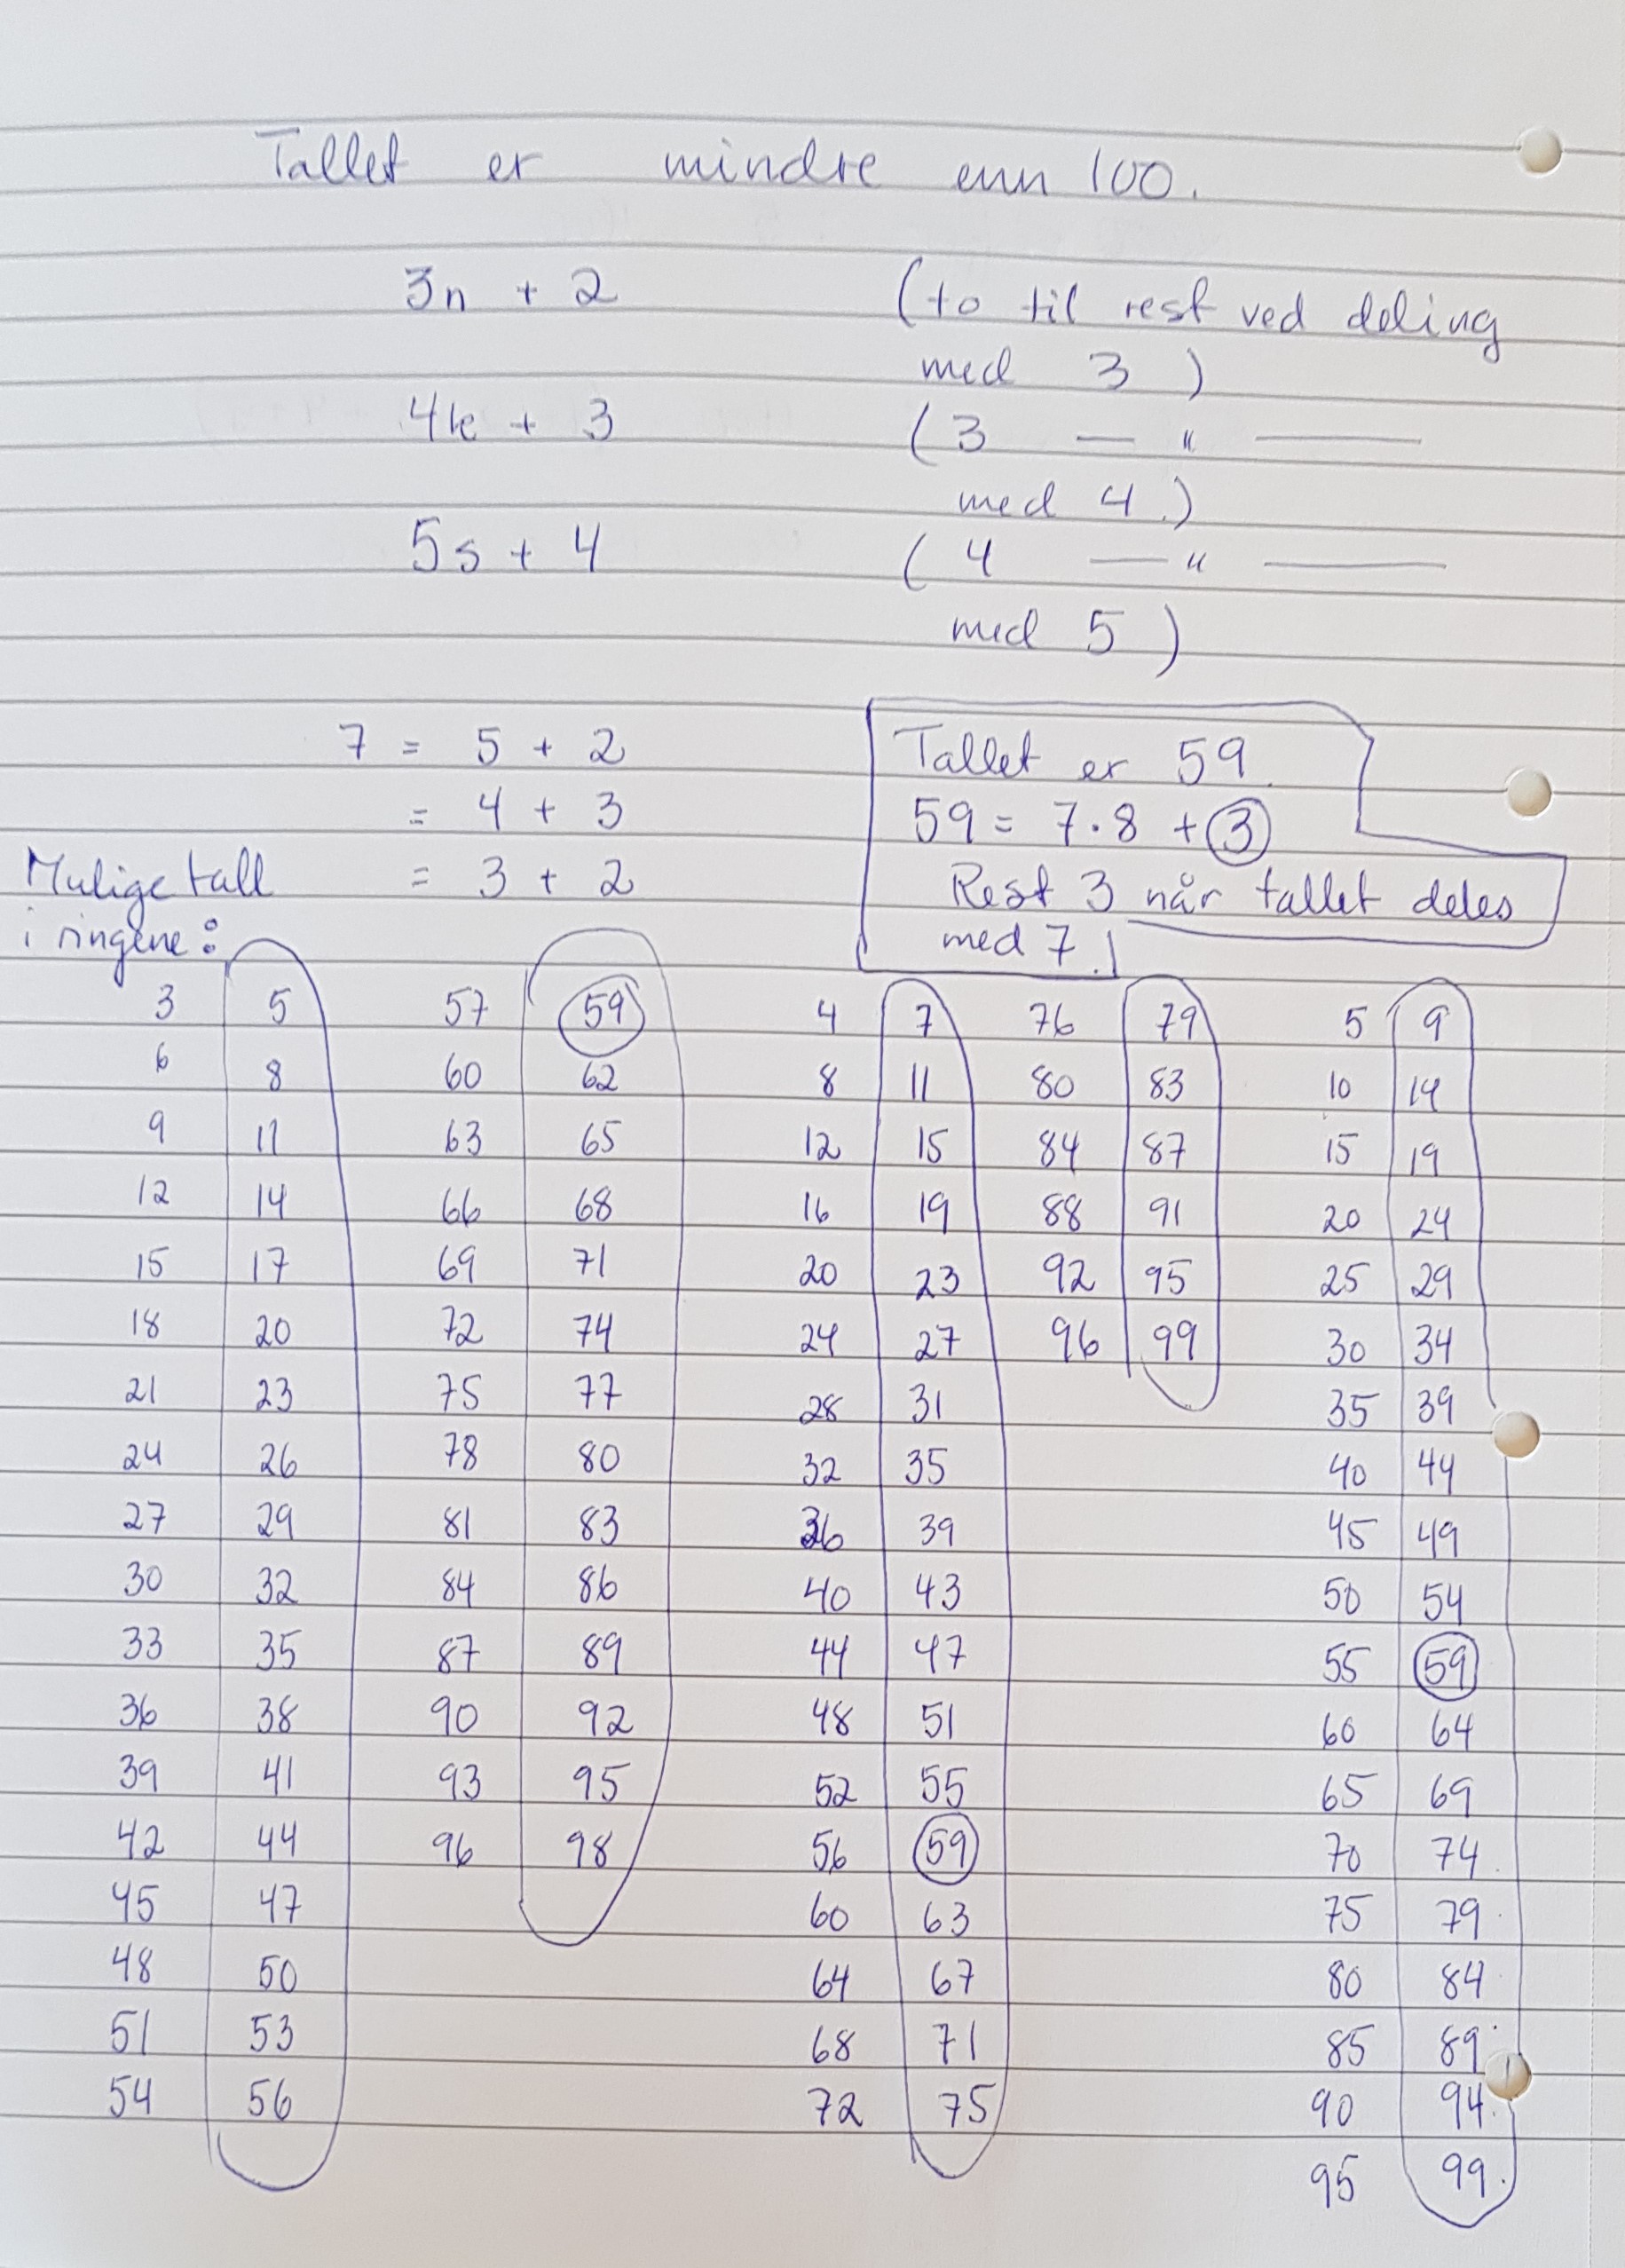 Tallet er mindre enn 100.
3n + 2 (to til rest ved deling
med 3)
4k + 3 (3 — " —
med 4.)
5s + 4 (4 — " —
med 5)
7 = 5 + 2
= 4 + 3
= 3 + 2
Tallet er 59.
59 = 7·8 + 3
Rest 3 når tallet deles
med 7.
Mulige tall
i ringene:
3 5 57 59 4 7 76 79 5 9
6 8 60 62 8 11 80 83 10 14
9 11 63 65 12 15 84 87 15 19
12 14 66 68 16 19 88 91 20 24
15 17 69 71 20 23 92 95 25 29
18 20 72 74 24 27 96 99 30 34
21 23 75 77 28 31 35 39
24 26 78 80 32 35 40 44
27 29 81 83 36 39 45 49
30 32 84 86 40 43 50 54
33 35 87 89 44 47 55 59
36 38 90 92 48 51 60 64
39 41 93 95 52 55 65 69
42 44 96 98 56 59 70 74
45 47 60 63 75 79
48 50 64 67 80 84
51 53 68 71 85 89
54 56 72 75 90 94
95 99